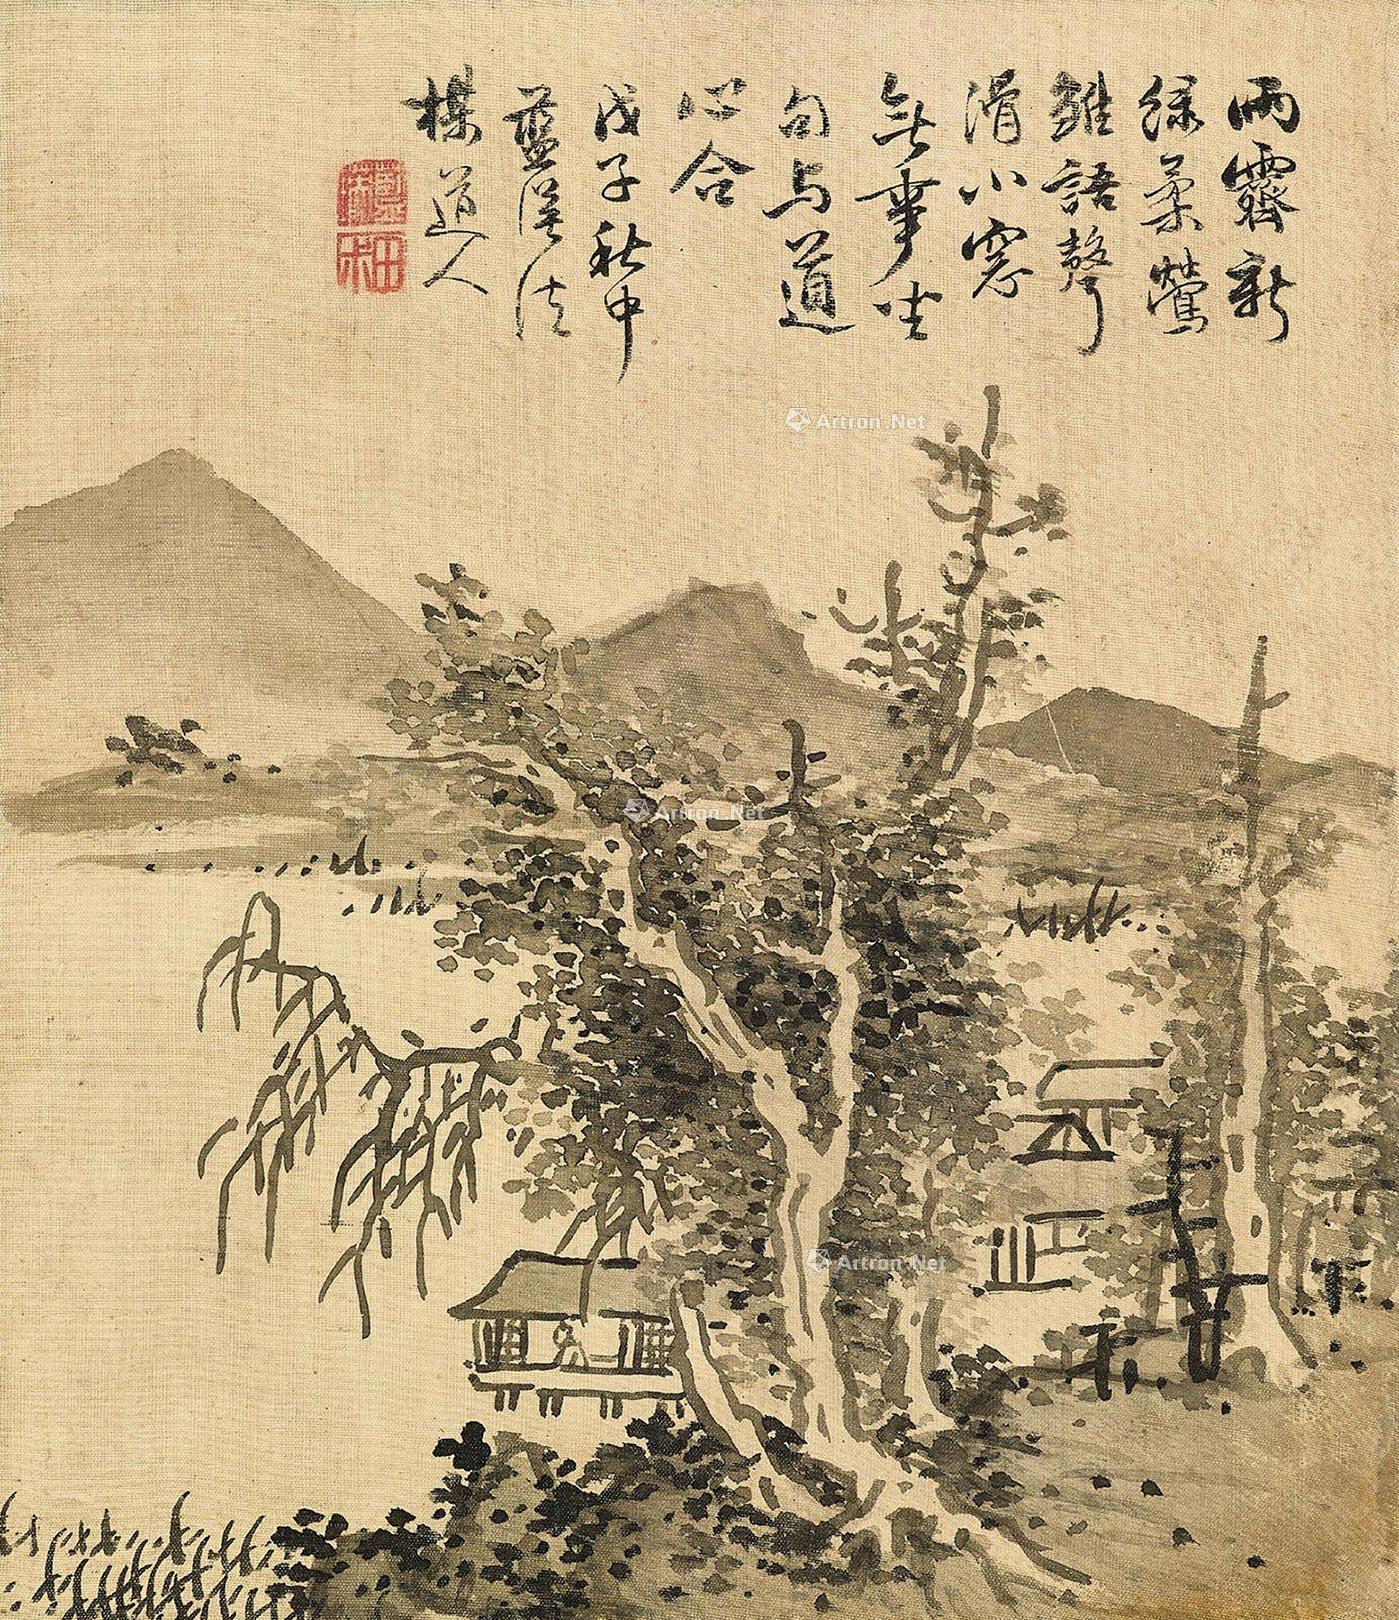 雨霽新
绿柔鶯
雛語聲
滑小窓
無事坐
句与道
心合
戊子秋中
藍瑛法
樵道人
Artron.Net
Artron.Net
Artron.Net